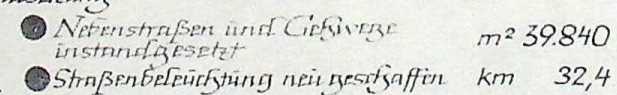 Nebenstraßen und Gehwege m² 39.840
instandgesetzt
Straßenbeleuchtung neu geschaffen km 32,4